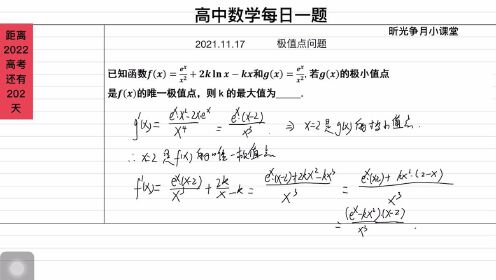 高中数学每日一题
昕光争月小课堂
距离
2022
高考
还有
202
天
2021.11.17 极值点问题
已知函数f(x) = e^x/x² + 2k ln x − kx和g(x) = e^x/x². 若g(x)的极小值点
是f(x)的唯一极值点，则 k 的最大值为_____.
g'(x) = (e^x·x²-2xe^x)/x⁴ = e^x(x-2)/x³ ⇒ x=2是g(x)的极小值点.
∴ x=2 是f(x)的唯一极值点
f'(x) = e^x(x-2)/x³ + 2k/x - k = (e^x(x-2)+2kx²-kx³)/x³ = (e^x(x-2)+kx²·(2-x))/x³
= (e^x-kx²)(x-2)/x³ .